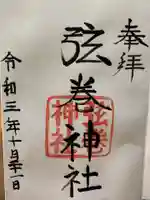 奉拝
弦巻神社
弦巻神社
令和三年十月二十一日